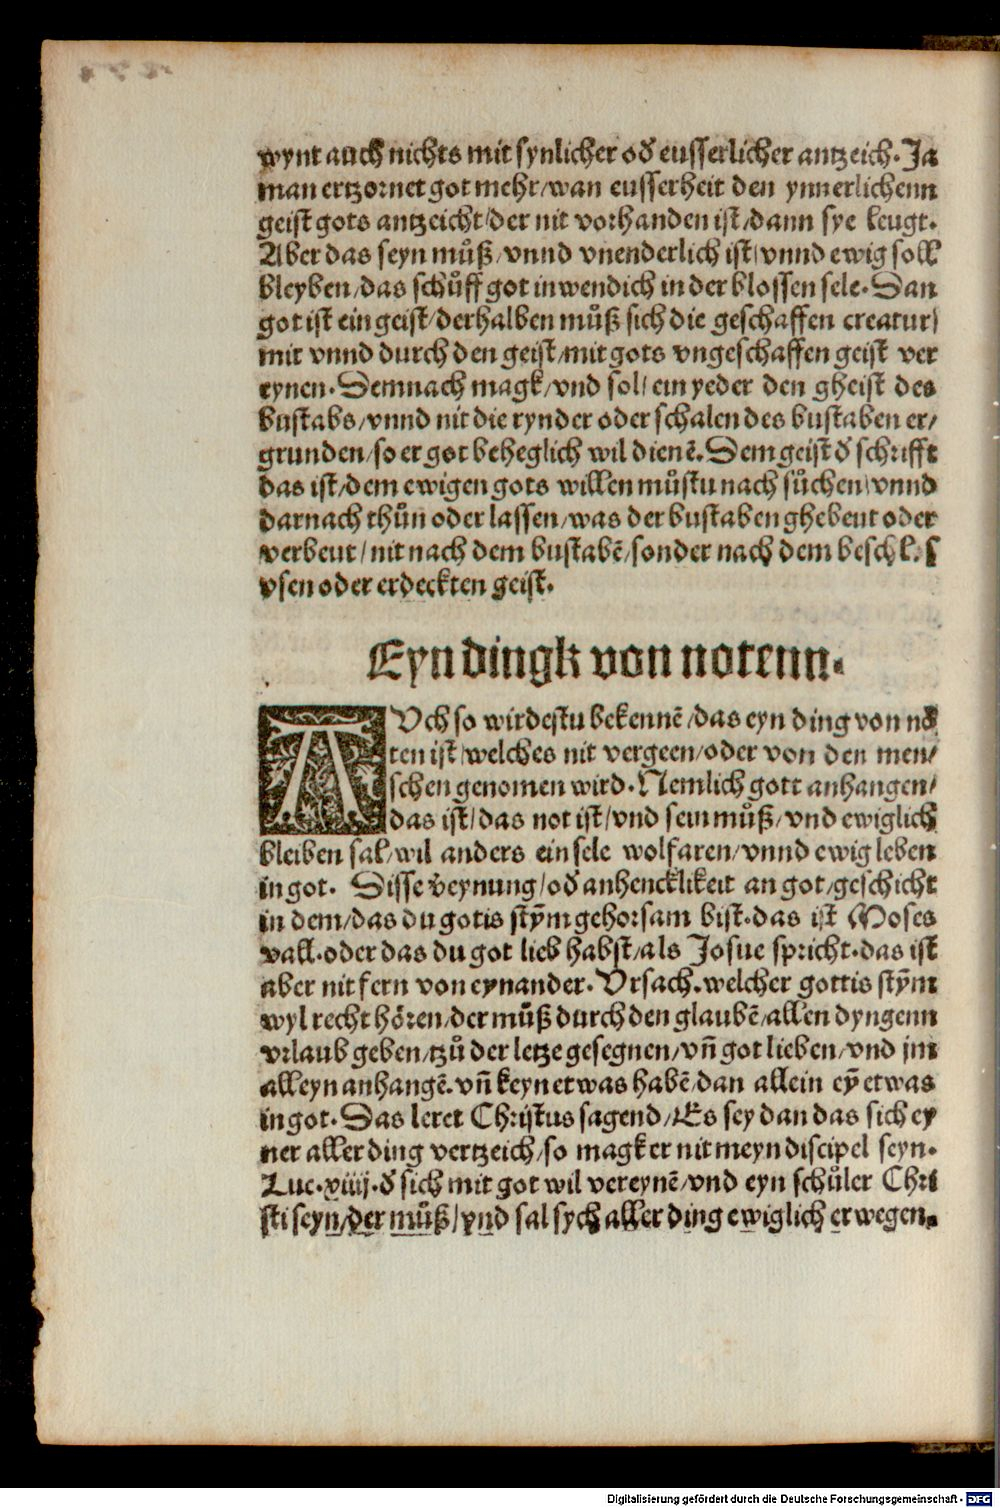 wynt auch nichts mit synlicher oď eusserlicher antzeich. Ja
man ertzornet got mehr/wan eusserheit den ynnerlichenn
geist gots antzeicht/der nit vorhanden ist/dann sye leugt.
Aber das seyn můß/vnnd vnenderlich ist/vnnd ewig soll
bleyben/das schůff got inwendich in der blossen sele. Dan
got ist ein geist/derhalben můß sich die geschaffen creatur/
mit vnnd durch den geist/mit gots vngeschaffen geist ver
eynen. Demnach magk/vnd sol/ein yeder den gheist des
bustabs/vnnd nit die rynder oder schalen des bustaben er/
grunden/so er got beheglich wil dienē. Dem geist ď schrifft
das ist/dem ewigen gots willen můstu nach sůchen/vnnd
darnach thůn oder lassen/was der bustaben ghebeut oder
verbeut/nit nach dem bustabē/sonder nach dem beschl.s
vsen oder erdeckten geist.
Eyn dingk von notenn.
AVch so wirdestu bekennē/das eyn ding von nö
ten ist/welches nit vergeen/oder von den men/
schen genomen wird. Nemlich gott anhangen/
das ist/das not ist/vnd sein můß/vnd ewiglich
bleiben sal/wil anders ein sele wolfaren/vnnd ewig leben
in got. Disse veynung/oď anhencklikeit an got/geschicht
in dem/das du gotis stȳm gehorsam bist. das ist Moses
vall. oder das du got lieb habst/als Josue spricht. das ist
aber nit fern von eynander. Vrsach. welcher gottis stȳm
wyl recht hören/der můß durch den glaubē/allen dyngenn
vrlaub geben/tzů der letze gesegnen/vn̄ got lieben/vnd jm
alleyn anhangē. vn̄ keyn etwas habē/dan allein eȳ etwas
in got. Das leret Christus sagend/Es sey dan das sich ey
ner aller ding vertzeich/so magk er nit meyn discipel seyn.
Luc. xiiij. ď sich mit got wil vereynē/vnd eyn schůler Chri
sti seyn/der můß/vnd sal sych aller ding ewiglich erwegen.
Digitalisierung gefördert durch die Deutsche Forschungsgemeinschaft - DFG